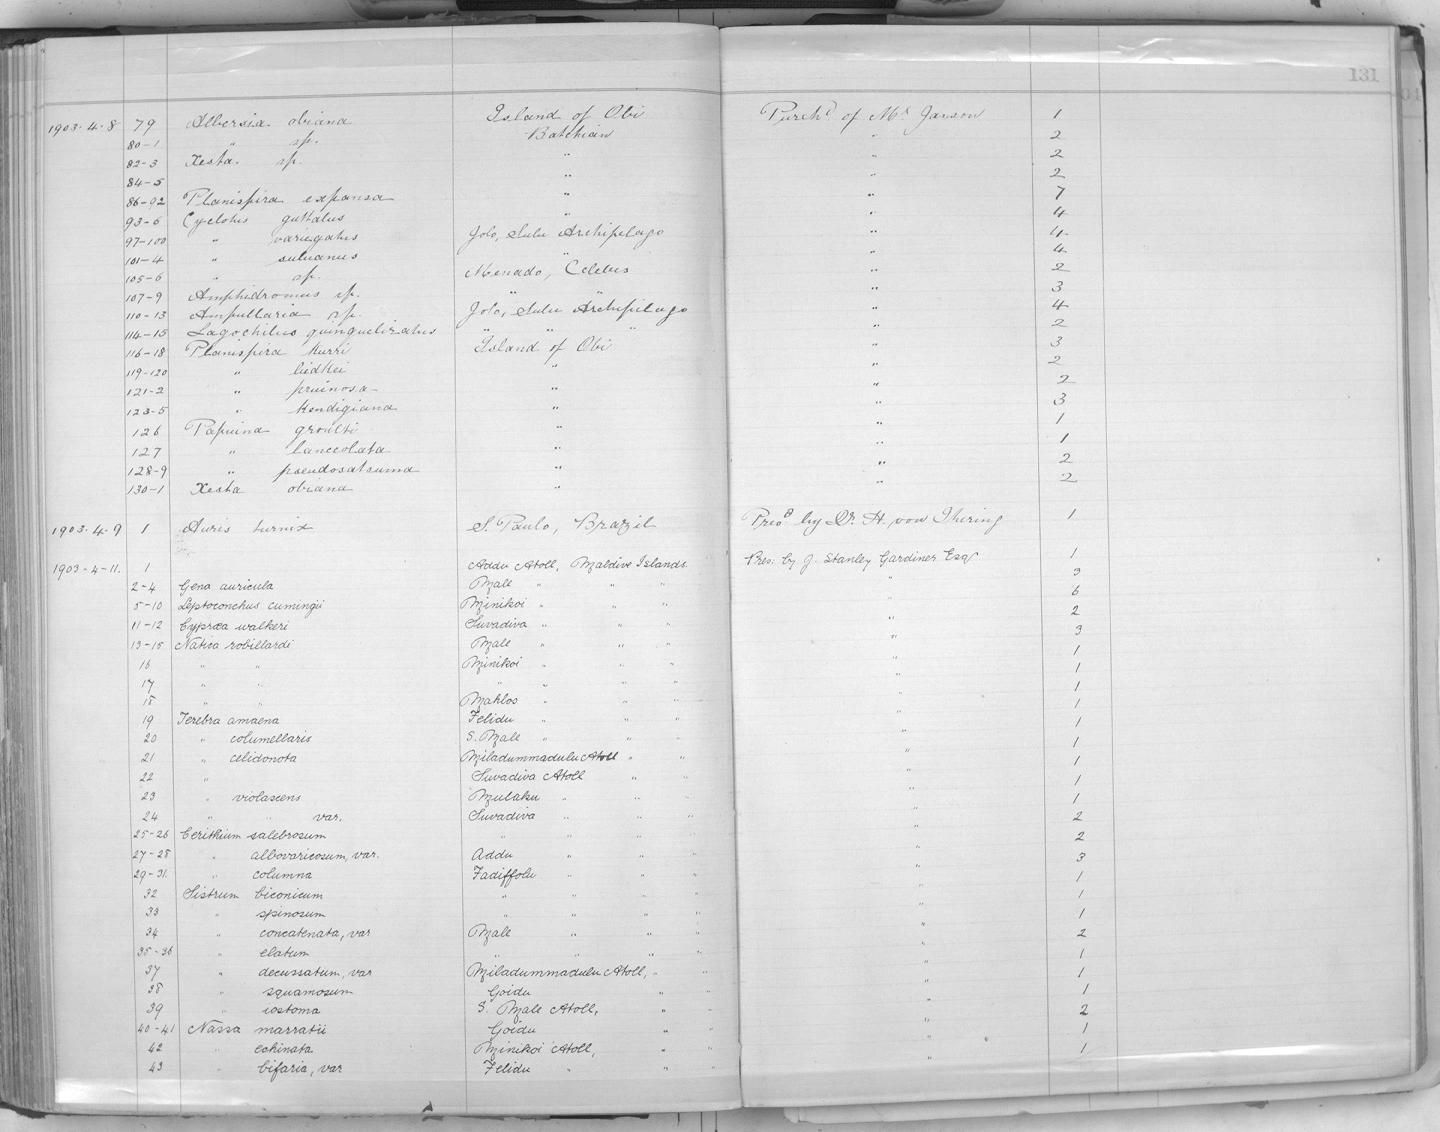 131
1903·4·8 79 Albersia obiana Island of Obi Purchd of Mr Janson 1
80-1 " sp. Batchian " 2
82-3 Xesta sp. " " 2
84-5 " " 2
86-92 Planispira expansa " " 7
93-6 Cyclotus guttatus " " 4
97-100 " variegatus Jolo, Sulu Archipelago " 4
101-4 " suluanus " " 4
105-6 " sp. Menado, Celebes " 2
107-9 Amphidromus sp. " " " 3
110-13 Ampullaria sp. Jolo, Sulu Archipelago " 4
114-15 Lagochilus quinqueliratus " " " " 2
116-18 Planispira kurri Island of Obi " 3
119-120 " liedkei " " 2
121-2 " pruinosa " " 2
123-5 " kendigiana " " 3
126 Papuina groulti " " 1
127 " lanceolata " " 1
128-9 " pseudosatsuma " " 2
130-1 Xesta obiana " " 2
1903·4·9 1 Auris turnix S. Paulo, Brazil Presd by Dr. H. von Ihering 1
1903-4-11. 1 Addu Atoll, Maldive Islands. Pres. by J. Stanley Gardiner Esq 1
2-4 Gena auricula Male " " " 3
5-10 Leptoconchus cumingii Minikoi " " " " 6
11-12 Cypræa walkeri Suvadiva " " " " 2
13-15 Natica robillardi Male " " " " 3
16 " " Minikoi " " " " 1
17 " " " " " " " 1
18 " " Mahlos " " " " 1
19 Terebra amaena Felidu " " " " 1
20 " columellaris S. Male " " " 1
21 " celidonota Miladummadulu Atoll " " " 1
22 " Suvadiva Atoll " " " 1
23 " violascens Mulaku " " " " 1
24 " " var. Suvadiva " " " " 1
25-26 Cerithium salebrosum " " " " " 2
27-28 " albovaricosum, var. Addu " " " " 2
29-31. " columna Fadiffolu " " " " 3
32 Sistrum biconicum " " " " " 1
33 " spinosum " " " " " 1
34 " concatenata, var Male " " " " 1
35-36 " elatum " " " " " 2
37 " decussatum, var Miladummadulu Atoll, " " " 1
38 " squamosum Goidu " " " 1
39 " iostoma S. Male Atoll, " " " 1
40-41 Nassa marratii Goidu " " " 2
42 " echinata Minikoi Atoll, " " " 1
43 " bifaria, var Felidu " " " " 1